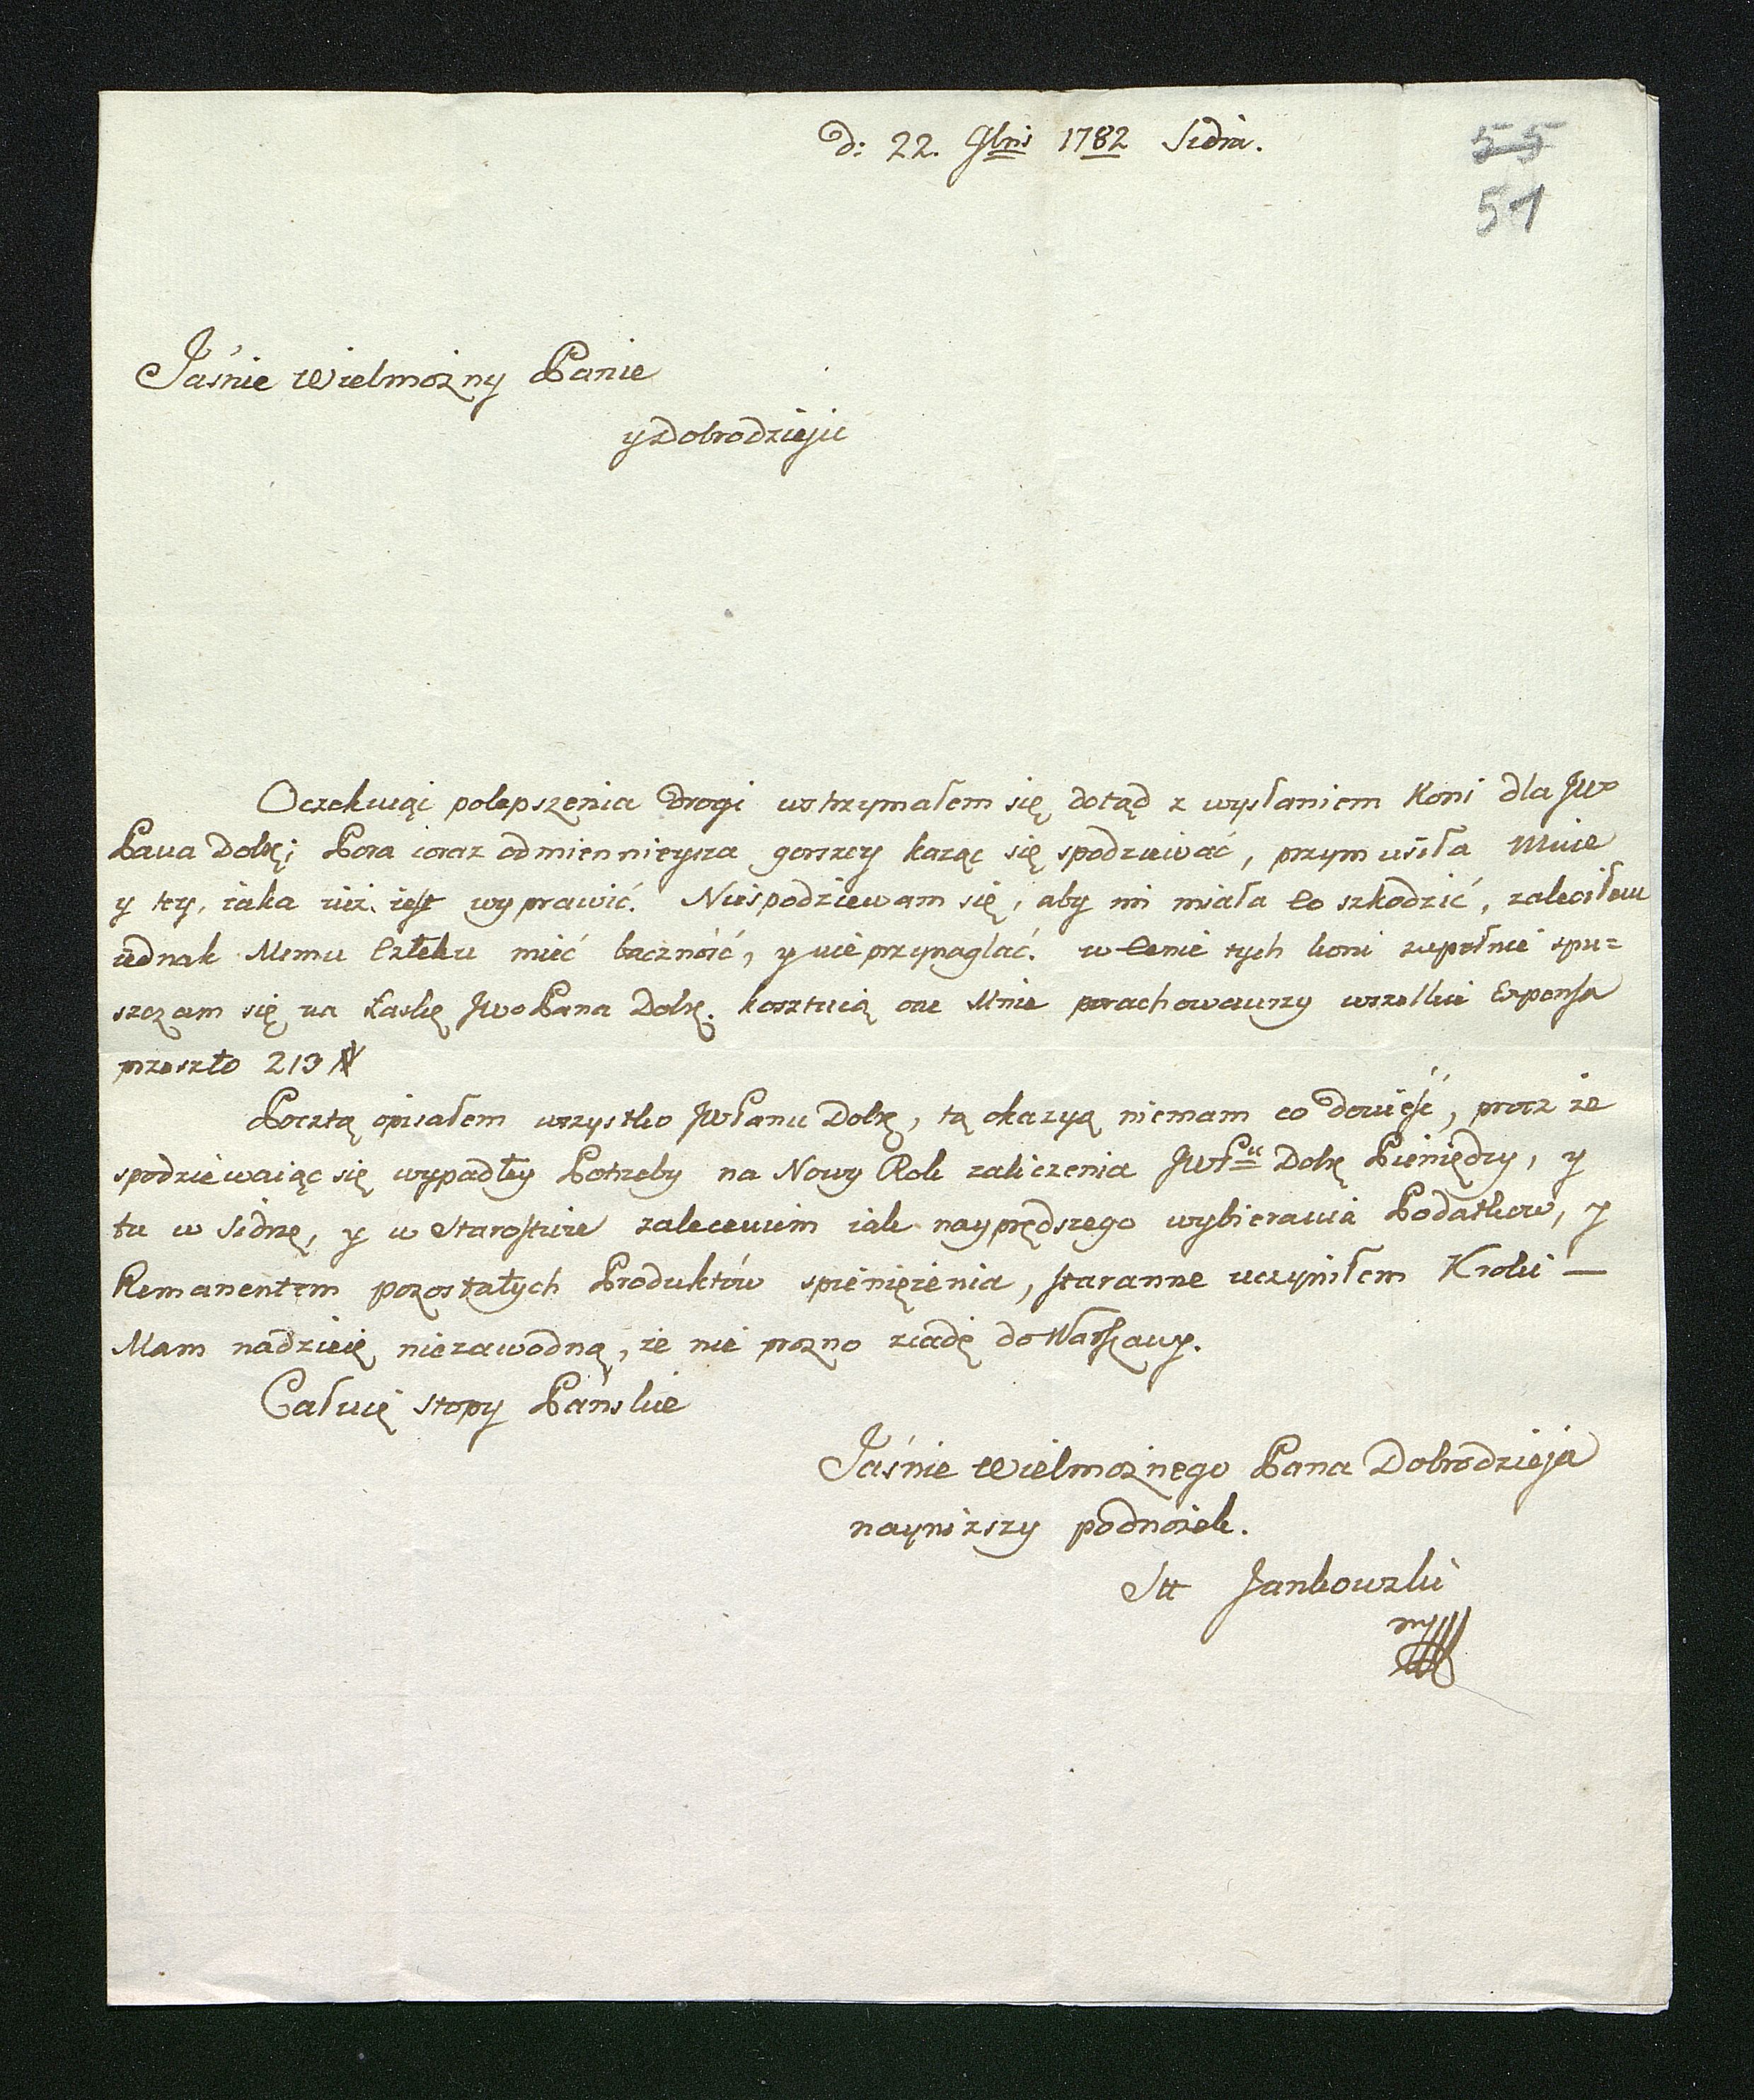 D: 22. 9bris 1782 Sidra.
55
51
Jaśnie Wielmożny Panie
y Dobrodzieju
Oczekuiąc polepszenia drogi wstrzymałem się dotąd z wysłaniem Koni dla JWo
Pana Dobę; Pora coraz odmiennieysza gorszey każąc się spodziewać, przymusiła Mnie
y tey, iaka iuż iest wyprawić. Niespodziewam się, aby im miała co szkodzić, zaleciłem
iednak Memu Człeku mieć baczność, y nie przynaglać. w Cenie tych koni zupełnie spu=
szczam się na Łaskę JWo Pana Dobę. kosztuią one Mnie porachowawszy wszelkie Expensa
przeszło 213 #
Pocztą opisałem wszystko JWPanu Dobę, tą okazyą niemam co donieść, procz że
spodziewaiąc się wypadłey Potrzeby na Nowy Rok zaliczenia JWPu Dobę Pieniędzy, y
tu w Sidrze, y w Starostwie zaleceniem iak nayprędszego wybierania Podatkow, y
Remanentem pozostałych Produktów spieniężenia, staranne uczyniłem Kroki —
Mam nadzieię niezawodną, że nie prozno ziadę do Warszawy.
Całuię stopy Pańskie
Jaśnie Wielmożnego Pana Dobrodzieja
nayniższy podnożek.
Stt Jankowski
mp